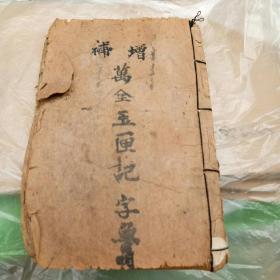 增補
萬全玉匣記字